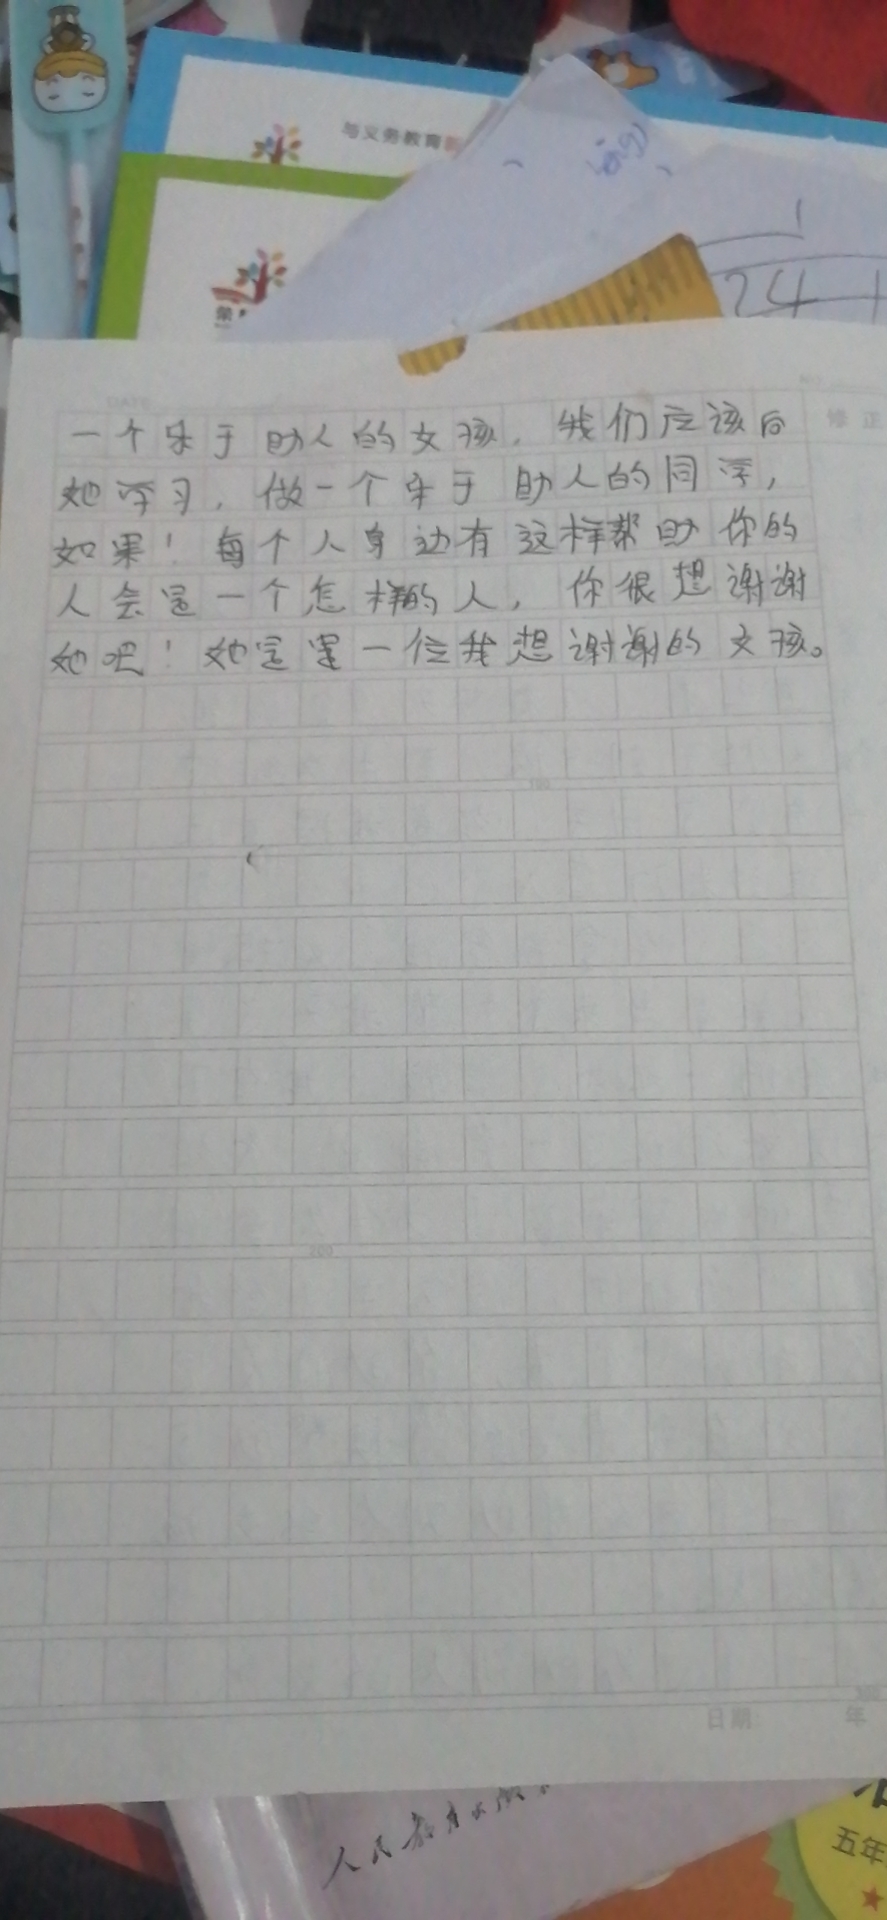 与义务教育
24
DATE
修正
一个乐于助人的女孩，我们应该向
她学习，做一个乐于助人的同学，
如果！每个人身边有这样帮助你的
人会是一个怎样的人，你很想谢谢
她吧！她定是一位我想谢谢的女孩。
100
200
日期 年
人民教育出版
五年